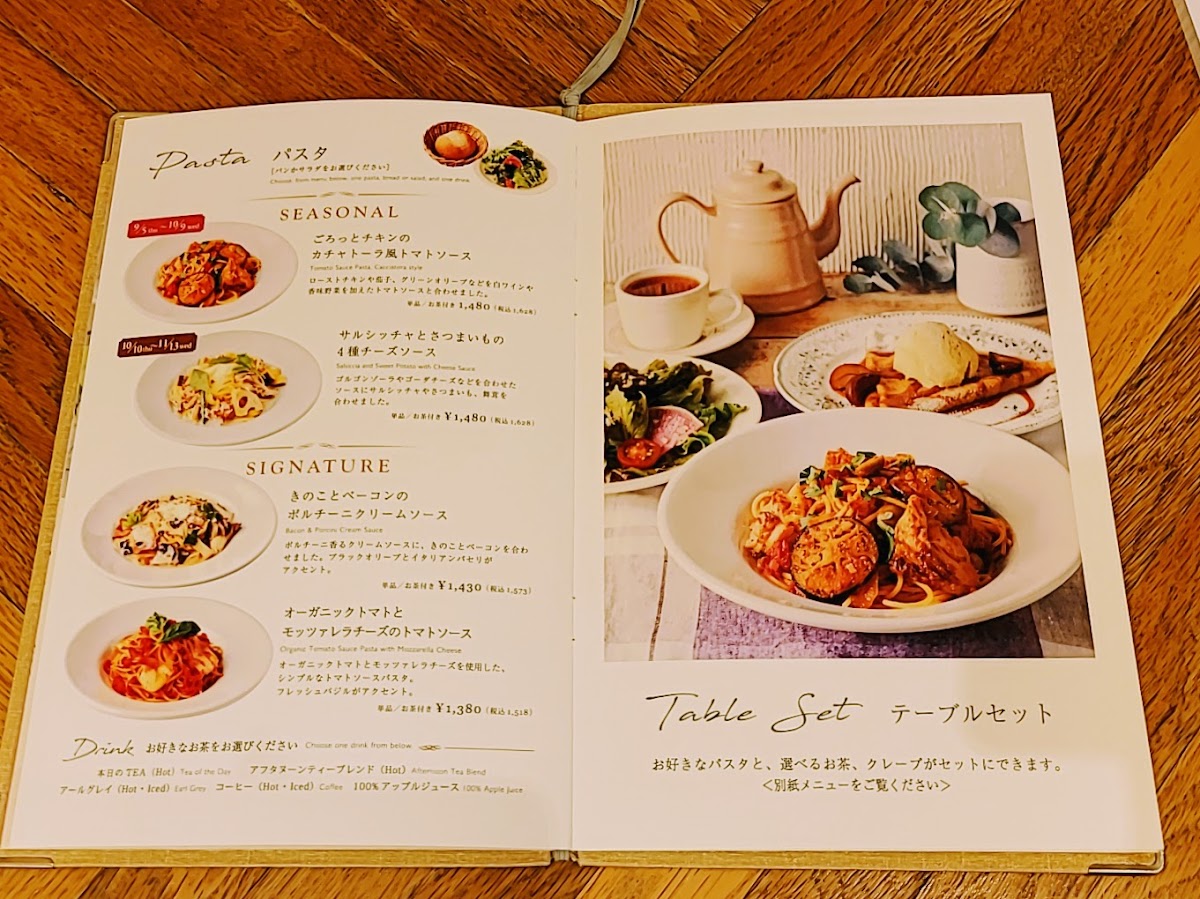 Pasta パスタ
[パンかサラダをお選びください]
Choose from menu below, one pasta, bread or salad, and one drink.
SEASONAL
9/5 thu ～ 10/9 wed
ごろっとチキンの
カチャトーラ風トマトソース
Tomato Sauce Pasta, Cacciatora style
ローストチキンや茄子、グリーンオリーブなどを白ワインや
香味野菜を加えたトマトソースと合わせました。
単品／お茶付き 1,480（税込 1,628）
10/10 thu ～ 11/13 wed
サルシッチャとさつまいもの
4種チーズソース
Salsiccia and Sweet Potato with Cheese Sauce
ゴルゴンゾーラやゴーダチーズなどを合わせた
ソースにサルシッチャやさつまいも、舞茸を
合わせました。
単品／お茶付き ¥1,480（税込 1,628）
SIGNATURE
きのことベーコンの
ポルチーニクリームソース
Bacon & Porcini Cream Sauce
ポルチーニ香るクリームソースに、きのことベーコンを合わ
せました。ブラックオリーブとイタリアンパセリが
アクセント。
単品／お茶付き ¥1,430（税込 1,573）
オーガニックトマトと
モッツァレラチーズのトマトソース
Organic Tomato Sauce Pasta with Mozzarella Cheese
オーガニックトマトとモッツァレラチーズを使用した、
シンプルなトマトソースパスタ。
フレッシュバジルがアクセント。
単品／お茶付き ¥1,380（税込 1,518）
Drink お好きなお茶をお選びください Choose one drink from below
本日のTEA（Hot）Tea of the Day アフタヌーンティーブレンド（Hot）Afternoon Tea Blend
アールグレイ（Hot・Iced）Earl Grey コーヒー（Hot・Iced）Coffee 100%アップルジュース 100% Apple Juice
Table Set テーブルセット
お好きなパスタと、選べるお茶、クレープがセットにできます。
＜別紙メニューをご覧ください＞